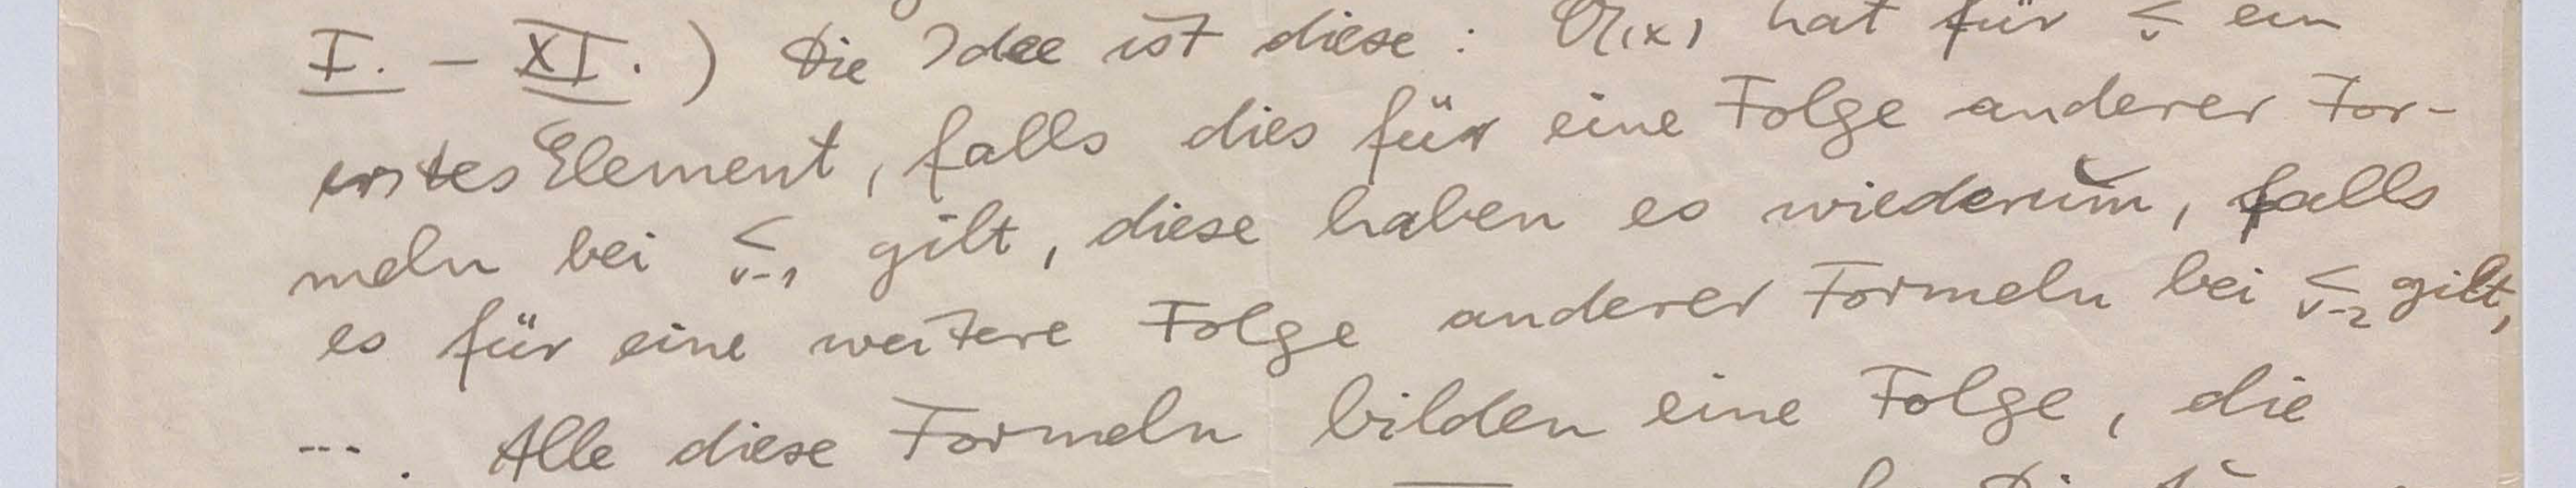 I. – XI. ) Die Idee ist diese : 𝔄(x) hat für <ᵥ ein
erstes Element, falls dies für eine Folge anderer For-
meln bei <ᵥ₋₁ gilt, diese haben es wiederum, falls
es für eine weitere Folge anderer Formeln bei <ᵥ₋₂ gilt,
--- . Alle diese Formeln bilden eine Folge, die